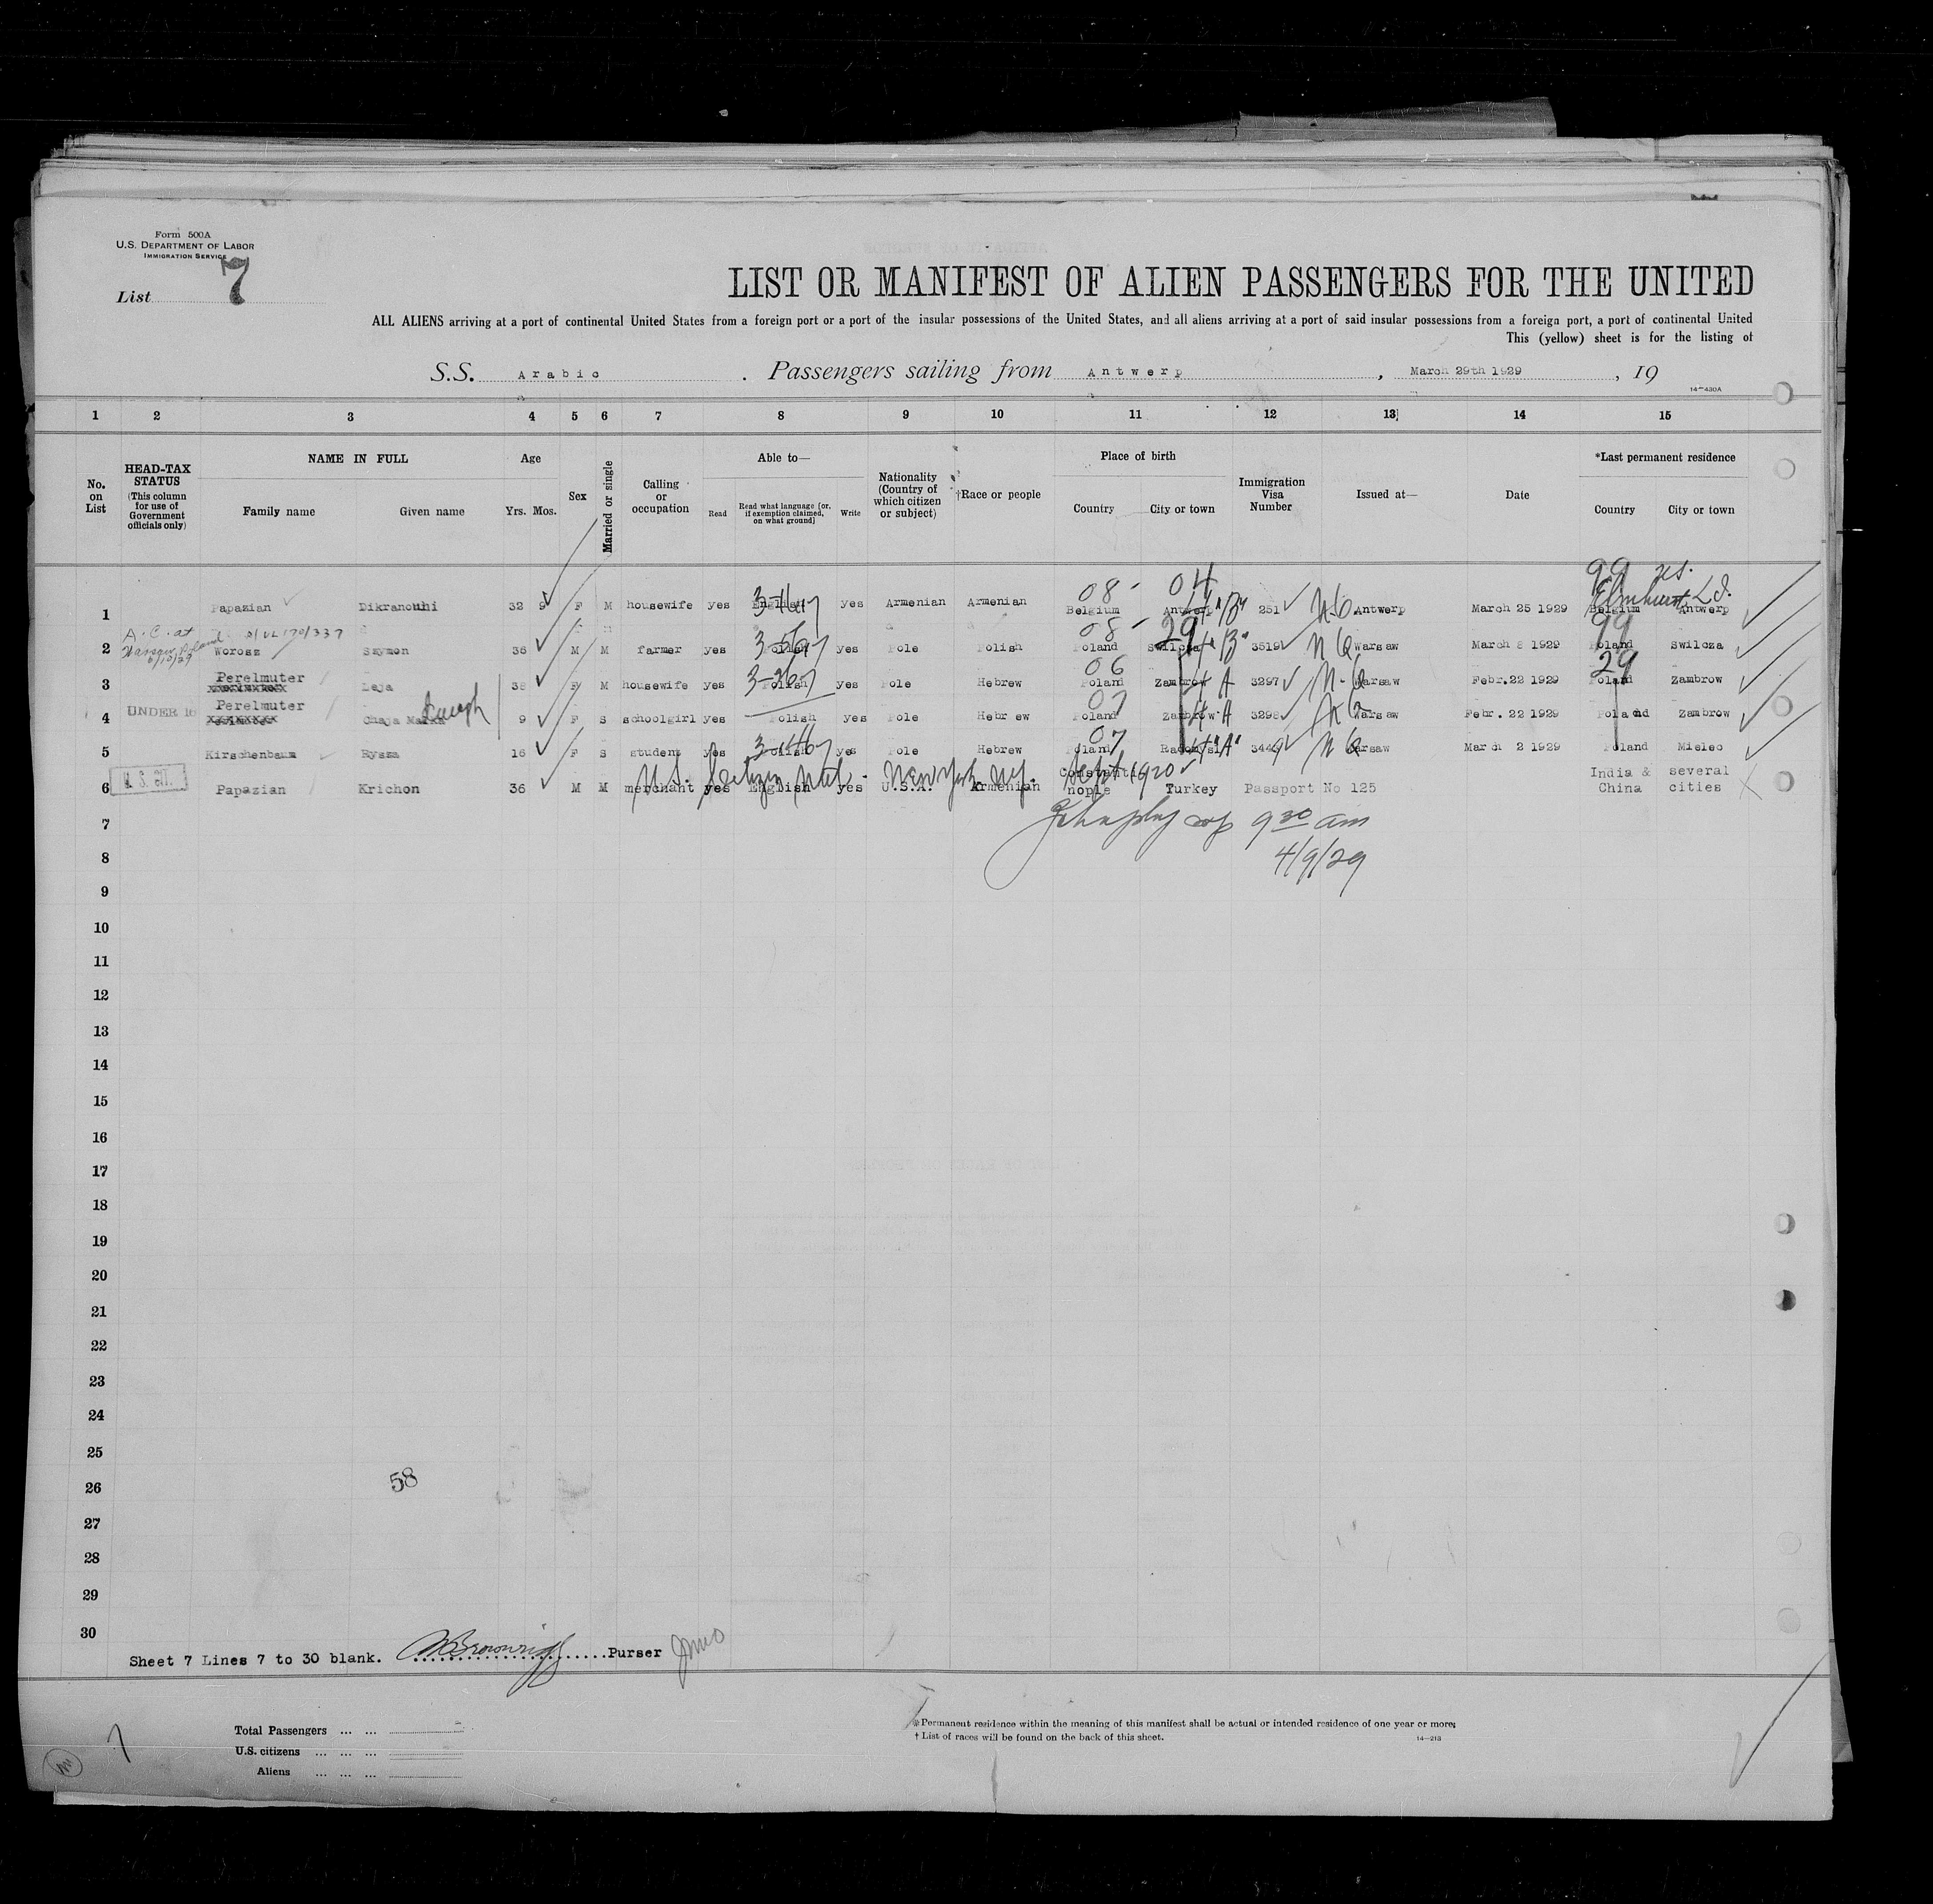 Form 500A
U.S. DEPARTMENT OF LABOR
IMMIGRATION SERVICE
List 7
LIST OR MANIFEST OF ALIEN PASSENGERS FOR THE UNITED
ALL ALIENS arriving at a port of continental United States from a foreign port or a port of the insular possessions of the United States, and all aliens arriving at a port of said insular possessions from a foreign port, a port of continental United
This (yellow) sheet is for the listing of
S.S. Arabic . Passengers sailing from Antwerp , March 29th 1929 , 19
14-430A
1 2 3 4 5 6 7 8 9 10 11 12 13 14 15
No. on List
HEAD-TAX STATUS (This column for use of Government officials only)
NAME IN FULL
Family name Given name
Age
Yrs. Mos.
Sex
Married or single
Calling or occupation
Able to—
Read Read what language [or, if exemption claimed, on what ground] Write
Nationality (Country of which citizen or subject)
†Race or people
Place of birth
Country City or town
Immigration Visa Number
Issued at—
Date
*Last permanent residence
Country City or town
08 04 99
Elmhurst L.I.
1 Papazian Dikranouhi 32 9 F M housewife yes English yes Armenian Armenian Belgium Antwerp 251 Antwerp March 25 1929 Belgium Antwerp
A.C. at Warsaw, Poland 6/10/29
2 Worosz Szymon 36 M M farmer yes Polish yes Pole Polish Poland Swilcza 3519 Warsaw March 8 1929 Poland Swilcza
3 Perelmuter Leja 38 F M housewife yes Polish yes Pole Hebrew Poland Zambrow 3297 Warsaw Febr.22 1929 Poland Zambrow
UNDER 16
4 Perelmuter Chaja Malka 9 F S schoolgirl yes Polish yes Pole Hebrew Poland Zambrow 3298 Warsaw Febr. 22 1929 Poland Zambrow
5 Kirschenbaum Rysza 16 F S student yes Polish yes Pole Hebrew Poland 3449 Warsaw March 2 1929 Poland Mielec
U.S. CIT.
U.S. Citizen Nat. New York N.Y. Sept 1920
6 Papazian Krichon 36 M M merchant yes English yes U.S.A. Armenian Constantinople Turkey Passport No 125 India & China several cities
7
9 30 am
4/9/29
8
9
10
11
12
13
14
15
16
17
18
19
20
21
22
23
24
25
58
26
27
28
29
30
Sheet 7 Lines 7 to 30 blank. Purser
Total Passengers
U.S. citizens
Aliens
* Permanent residence within the meaning of this manifest shall be actual or intended residence of one year or more.
† List of races will be found on the back of this sheet.
14-213